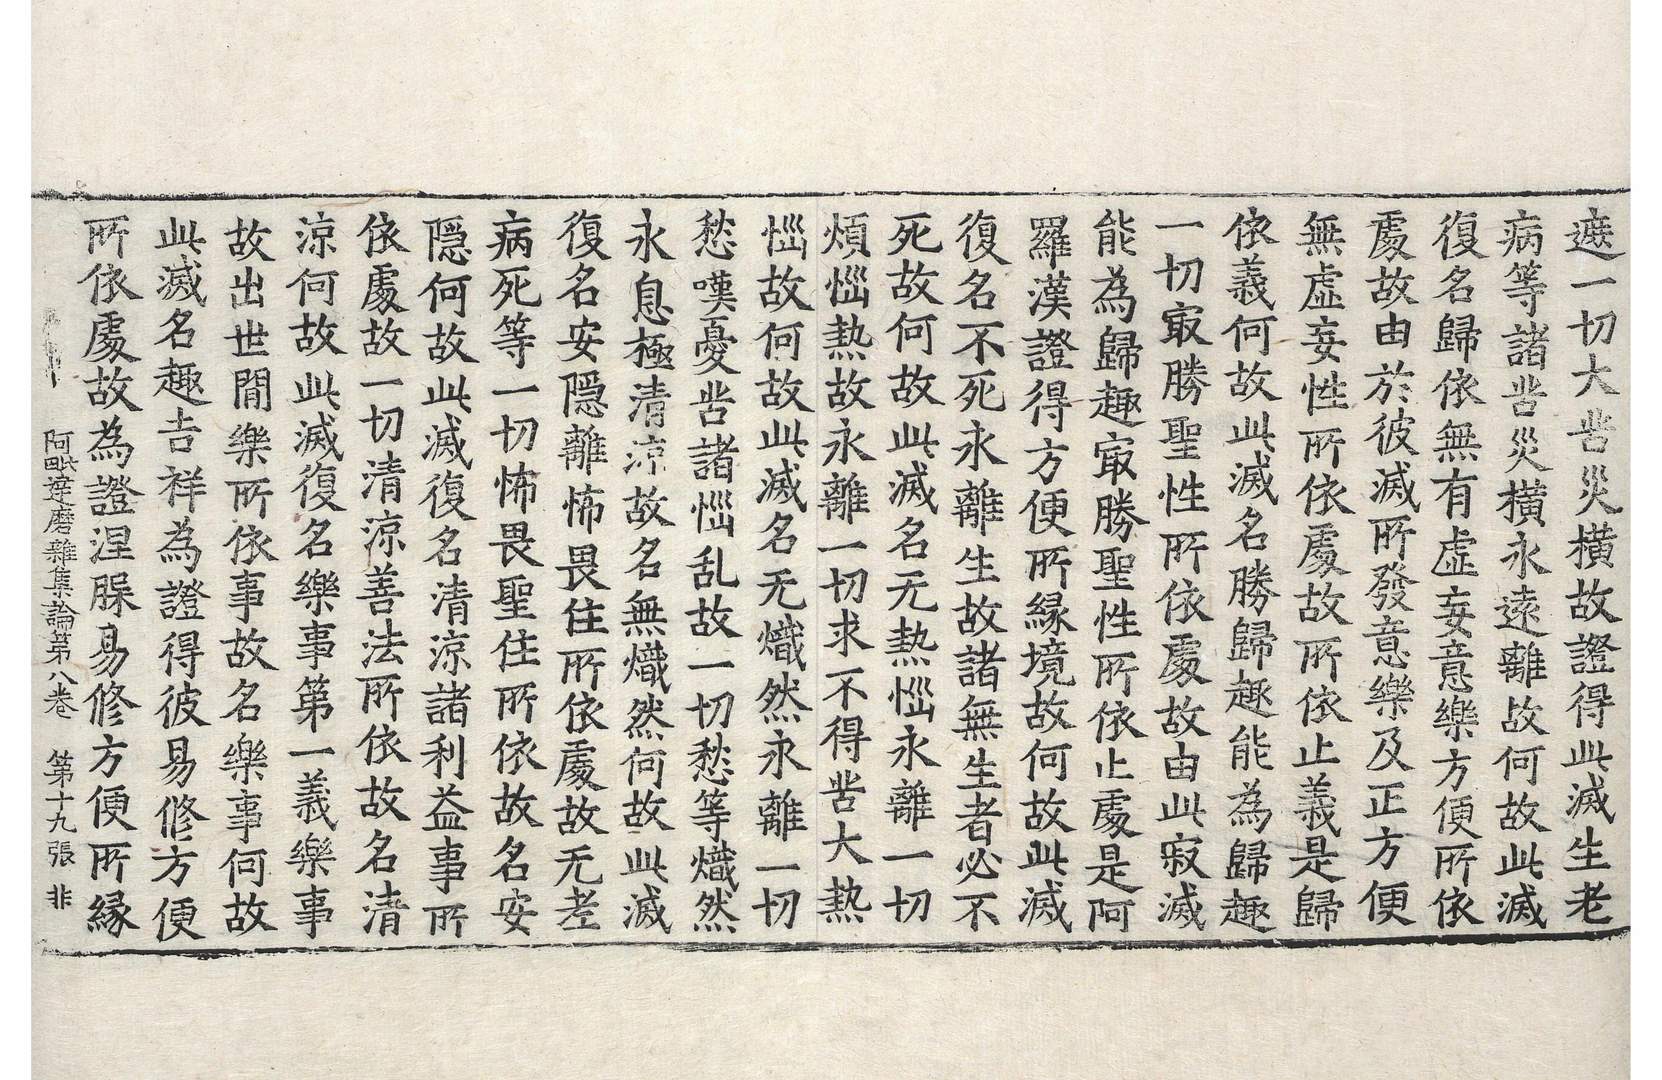 遮一切大苦災橫故證得此滅生老
病等諸苦災橫永遠離故何故此滅
復名歸依無有虛妄意樂方便所依
處故由於彼滅所發意樂及正方便
無虛妄性所依處故所依止義是歸
依義何故此滅名勝歸趣能為歸趣
一切㝡勝聖性所依處故由此寂滅
能為歸趣㝡勝聖性所依止處是阿
羅漢證得方便所緣境故何故此滅
復名不死永離生故諸無生者必不
死故何故此滅名无熱惱永離一切
煩惱熱故永離一切求不得苦大熱
惱故何故此滅名无熾然永離一切
愁嘆憂苦諸惱乱故一切愁等熾然
永息極清涼故名無熾然何故此滅
復名安隱離怖畏住所依處故无老
病死等一切怖畏聖住所依故名安
隱何故此滅復名清涼諸利益事所
依處故一切清涼善法所依故名清
涼何故此滅復名樂事第一義樂事
故出世間樂所依事故名樂事何故
此滅名趣吉祥為證得彼易修方便
所依處故為證涅槃易修方便所緣
阿毗達磨雜集論第八卷 第十九張 非